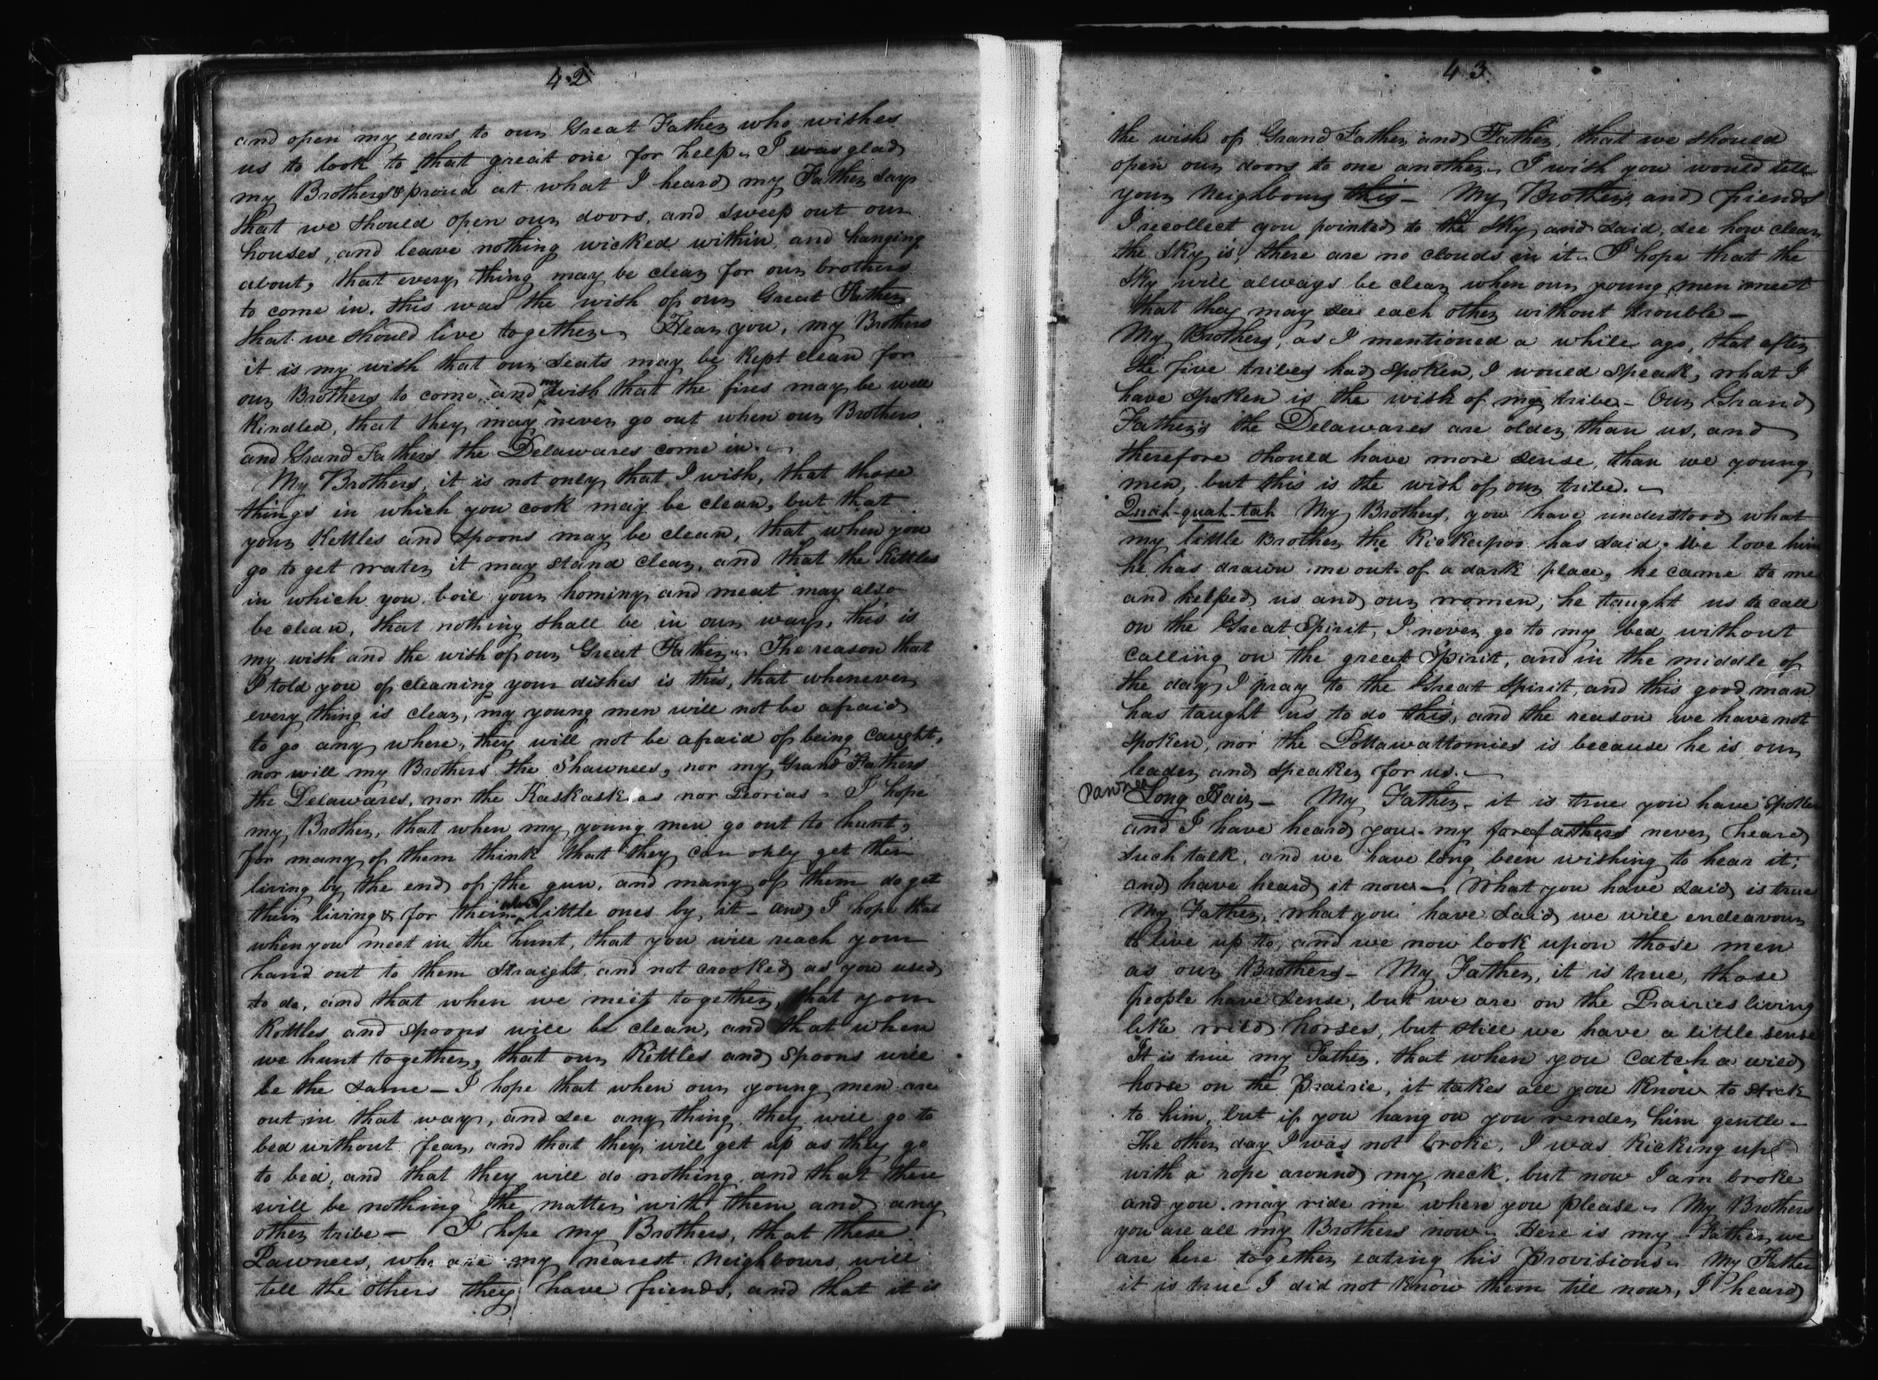 42
and open my ears to our Great Father who wishes
us to look to that great one for help. I was glad
my Brothers & proud at what I heard my Father say
that we should open our doors, and sweep out our
houses, and leave nothing wicked within and hanging
about, that every thing may be clear for our brothers
to come in. this was the wish of our Great Father
that we should live together. Hear you, my Brothers
it is my wish that our seats may be kept clean for
our Brothers to come, and my wish that the fires may be well
kindled, that they may never go out when our Brothers
and Grand Fathers the Delawares come in.
My Brothers, it is not only that I wish, that those
things in which you cook may be clean, but that
your Kettles and spoons may be clean, that when you
go to get water it may stand clear, and that the Kettles
in which you boil your hominy and meat may also
be clean, that nothing shall be in our way, this is
my wish and the wish of our Great Father. The reason that
I told you of cleaning your dishes is this, that whenever
every thing is clear, my young men will not be afraid
to go any where, they will not be afraid of being caught,
nor will my Brothers the Shawnees, nor my Grand Fathers
the Delawares, nor the Kaskaskias nor Peorias. I hope
my Brother, that when my young men go out to hunt,
for many of them think that they can only get their
living by the end of the gun, and many of them do get
their living & for their little ones by it - and I hope that
when you meet in the hunt, that you will reach your
hand out to them straight and not crooked as you used
to do, and that when we meet together, that your
Kettles and spoons will be clean, and that when
we hunt together, that our Kettles and spoons will
be the same - I hope that when our young men are
out in that way, and see any thing they will go to
bed without fear, and that they will get up as they go
to bed, and that they will do nothing and that there
will be nothing the matter with them and any
other tribe - I hope my Brothers, that these
Pawnees, who are my nearest neighbours, will
tell the others they have friends, and that it is
43.
the wish of Grand Father and Father, that we should
open our doors to one another. I wish you would tell
your neighbours this - My Brothers and friends
I recollect you pointed to the sky and said, see how clear
the sky is, there are no clouds in it. I hope that the
sky will always be clear when our young men meet
that they may see each other without trouble -
My Brothers, as I mentioned a while ago, that after
the five tribes had spoken, I would speak, what I
have spoken is the wish of my tribe - Our Grand
Father's the Delawares are older than us, and
therefore should have more sense than we young
men, but this is the wish of our tribe. -
Quah-quah-tah My Brothers, you have understood what
my little Brother the Kickapoo has said. We love him
he has drawn me out of a dark place, he came to me
and helped us and our women, he taught us to call
on the Great Spirit, I never go to my bed without
calling on the great Spirit, and in the middle of
the day I pray to the Great Spirit, and this good man
has taught us to do this, and the reason we have not
spoken, nor the Pottawattomies is because he is our
leader and speaker for us. -
Pawnee
Long Hair - My Father - it is true you have spoken
and I have heard you. my forefathers never heard
such talk, and we have long been wishing to hear it,
and have heard it now - What you have said is true
My Father, what you have said we will endeavour
to live up to, and we now look upon those men
as our Brothers - My Father, it is true, those
people have sense, but we are on the Prairies living
like wild horses, but still we have a little sense
It is true my Father, that when you catch a wild
horse on the prairie, it takes all you know to stick
to him, but if you hang on you render him gentle -
The other day I was not broke, I was kicking up
with a rope around my neck, but now I am broke
and you may ride me where you please. My Brothers
you are all my Brothers now. Here is my Father, we
are here together eating his provisions. My Father
it is true I did not know them till now, I heard